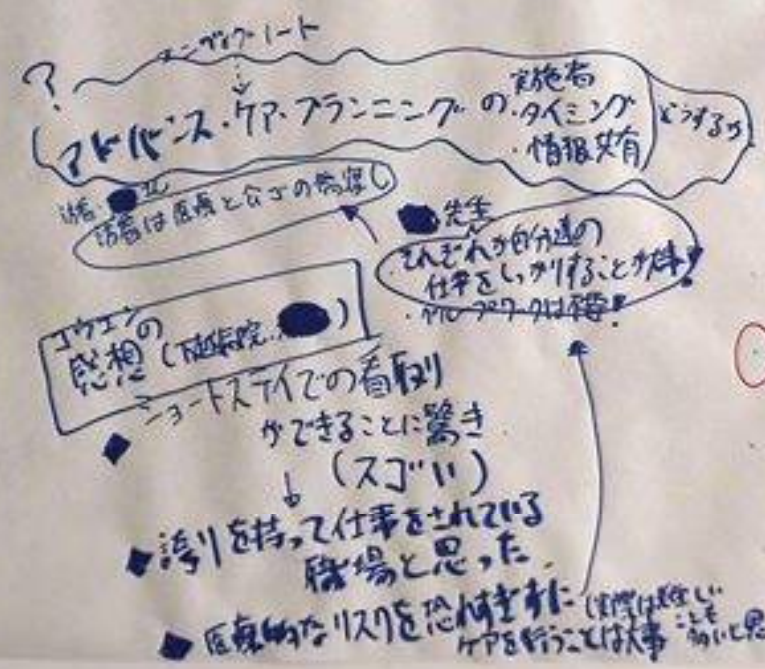 エンディングノート
?
アドバンス・ケア・プランニングの
実施者
・タイミング
・情報共有
どうするか
若者は医療と介護の橋渡し
先生
・それぞれが自分達の
仕事をしっかりすることが大事!
・グループワークは不要!
コウエンの
感想(
ショートステイでの看取り
ができることに驚き
(スゴい)
◆誇りを持って仕事をされている
職場と思った
◆医療的なリスクを恐れすぎずに
ケアを行うことは大事
(実際は難しい
ことも
多いと思